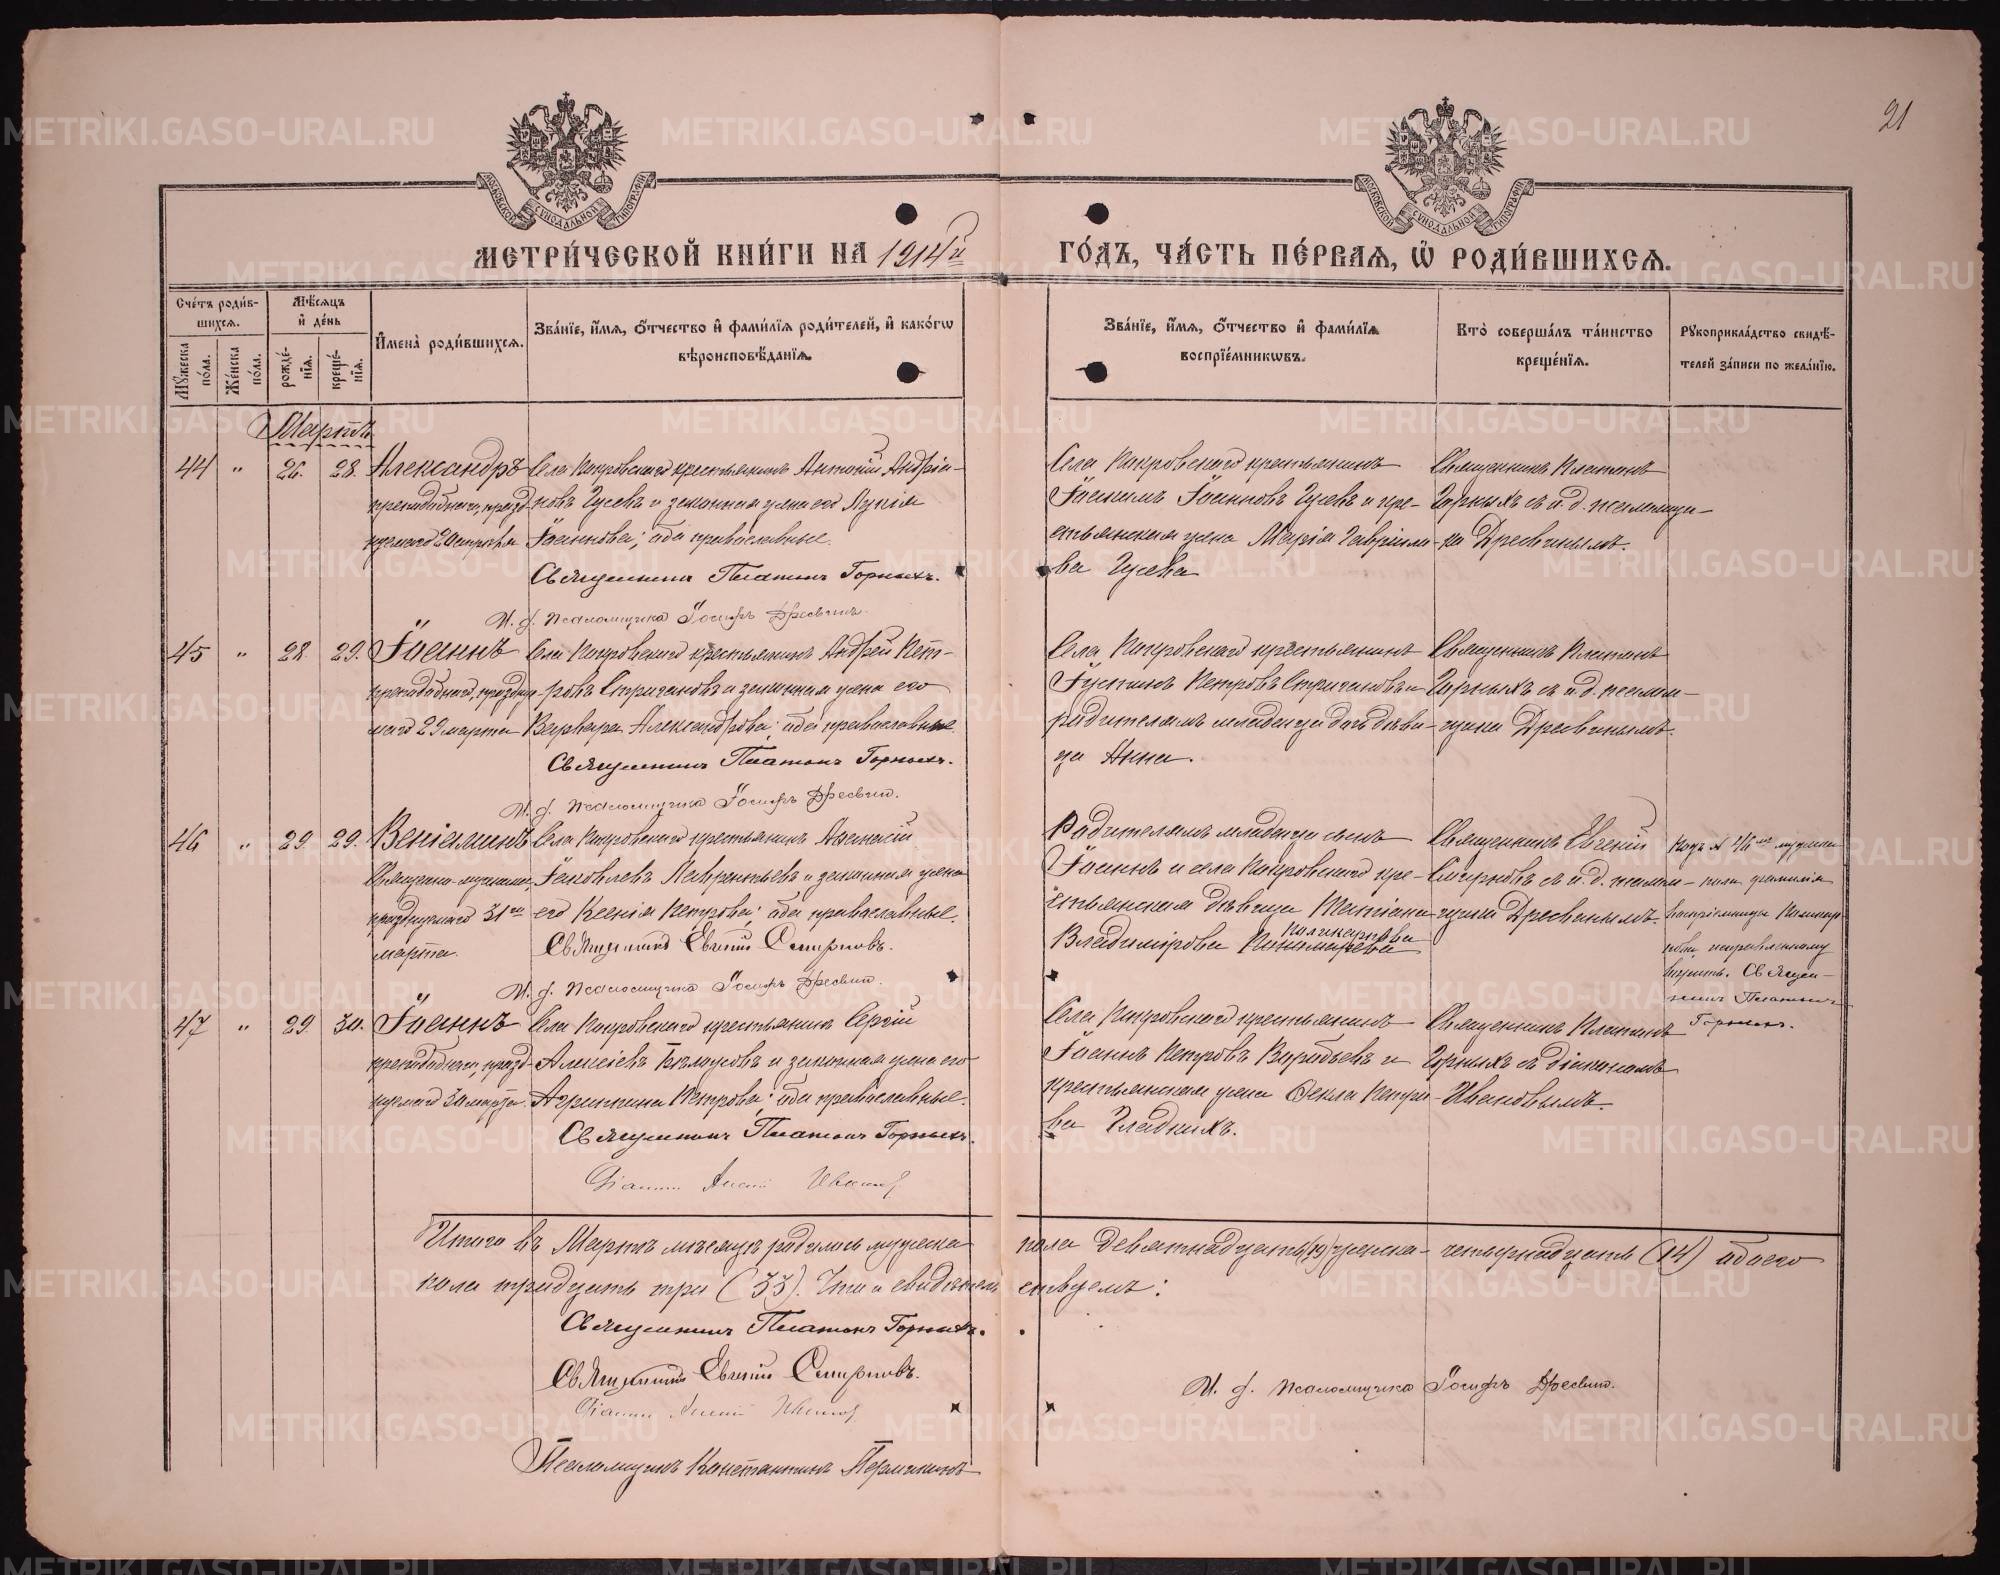 21
МОСКОВСКОЙ СѴНОДАЛЬНОЙ ТИПОГРАФІИ
МОСКОВСКОЙ СѴНОДАЛЬНОЙ ТИПОГРАФІИ
МЕТРИ́ЧЕСКОЙ КНИ́ГИ НА 1914й
ГО́ДЪ, ЧА́СТЬ ПЕ́РВАЯ, Ѡ҆ РОДИ́ВШИХСЯ.
Сче́тъ роди́в-
шихся.
Мѣ́сяцъ
и҆ де́нь
Мꙋ́жеска по́ла.
Же́нска по́ла.
рожде́-
нїя.
креще́-
нїя.
И҆мена̀ роди́вшихся.
Зва́нїе, и҆́мя, ѻ҆́тчество и҆ фами́лїя роди́телей, и҆ како́гѡ
вѣроисповѣ́данїя.
Зва́нїе, и҆́мя, ѻ҆́тчество и҆ фами́лїя
воспрїе́мникѡвъ.
Кто̀ соверша́лъ та́инство
креще́нїя.
Рꙋкоприкла́дство свидѣ́-
телей за́писи по жела́нїю.
Мартъ
44 " 26. 28. Александръ
преподобнаго, празд-
Села Покровскаго крестьянинъ Антоній Андріа-
новъ Гусевъ и законная жена его Лукія
Іоаннова; оба православные.
Священникъ Платонъ Горныхъ.
И. д. псаломщика Іосифъ Дресвинъ.
Села Покровскаго крестьянинъ
Іоакимъ Іоанновъ Гусевъ и кре-
стьянская жена Марія Гавріило-
ва Гусева
Священникъ Платонъ
Горныхъ съ и. д. псаломщи-
ка Дресвинымъ.
45 " 28 29. Іоаннъ
преподобнаго, праздну-
маго 29 марта
Села Покровскаго крестьянинъ Андрей Пет-
ровъ Стригановъ и законная жена его
Варвара Александрова; оба православные.
Священникъ Платонъ Горныхъ.
И. д. псаломщика Іосифъ Дресвинъ.
Села Покровскаго крестьянинъ
Іустинъ Петровъ Стригановъ и
родителямъ младенца дочь дѣви-
ца Анна.
Священникъ Платонъ
Горныхъ съ и. д. псалом-
щика Дресвинымъ.
46 " 29 29. Веніаминъ
Священно-мученика,
празднуемаго 31го
марта.
Села Покровскаго крестьянинъ Аѳанасій
Іаковлевъ Лаврентьевъ и законная жена
его Ксенія Петрова; оба православные.
Священникъ Евгеній Смирновъ.
И. д. псаломщика Іосифъ Дресвинъ.
Родителямъ младенца сынъ
Іоаннъ и села Покровскаго кре-
стьянская дѣвица Татіана
Владимірова Пономарева
Поликарпова
Священникъ Евгеній
Смирновъ съ и. д. псалом-
щика Дресвинымъ.
Подъ № 46мъ мужска
пола фамилія
воспріемницы Поликар-
пова, исправленному
вѣрить. Священ-
никъ Платонъ
Горныхъ.
47 " 29 30. Іоаннъ
преподобнаго, празд-
нуемаго 30 марта.
Села Покровскаго крестьянинъ Сергій
Алексіевъ Бѣлоусовъ и законная жена его
Агриппина Петрова; оба православные.
Священникъ Платонъ Горныхъ.
Діаконъ Ивановъ
Села Покровскаго крестьянинъ
Іоаннъ Петровъ Воробьевъ и
крестьянская жена Ѳекла Петро-
ва Гладкихъ.
Священникъ Платонъ
Горныхъ съ діакономъ
Ивановымъ.
Итого въ Мартѣ мѣсяцѣ родилось мужска
пола девятнадцать (19) женска- четырнадцать (14) обоего
пола тридцать три (33). Что и свидѣтель-
ствуемъ:
Священникъ Платонъ Горныхъ.
Священникъ Евгеній Смирновъ.
Діаконъ Ивановъ
И. д. псаломщика Іосифъ Дресвинъ.
Псаломщикъ Константинъ Пермикинъ
METRIKI.GASO-URAL.RU